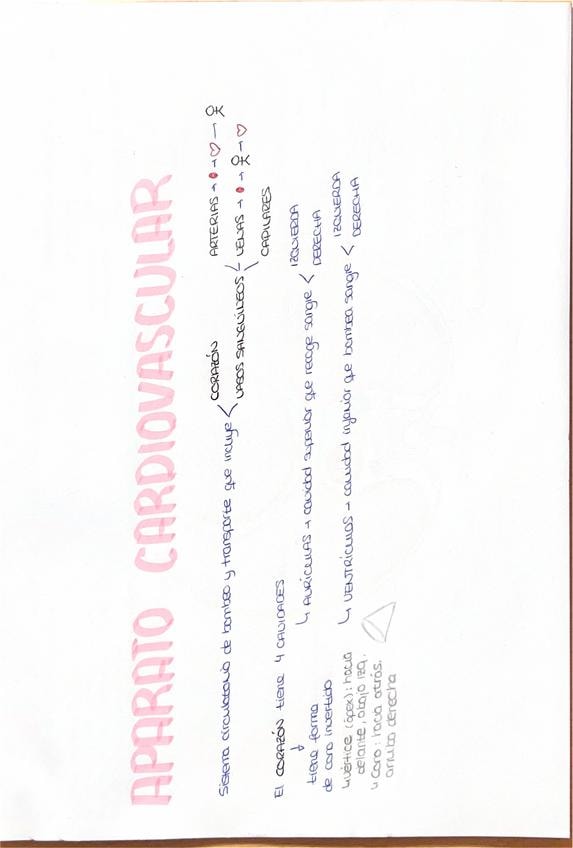 APARATO CARDIOVASCULAR
Sistema circulatorio de bombeo y transporte que incluye < CORAZÓN
VASOS SANGUÍNEOS < ARTERIAS → ♥ → 
VENAS → → ♥
CAPILARES
El CORAZÓN tiene 4 CAVIDADES
↳ AURÍCULAS → cavidad superior que recoge sangre < IZQUIERDA
DERECHA
↳ VENTRÍCULOS → cavidad inferior que bombea sangre < IZQUIERDA
DERECHA
↓
tiene forma
de cono invertido
↳ vértice (ápex): hacia
delante, abajo izq.
↳ Cono: hacia atrás,
arriba derecha